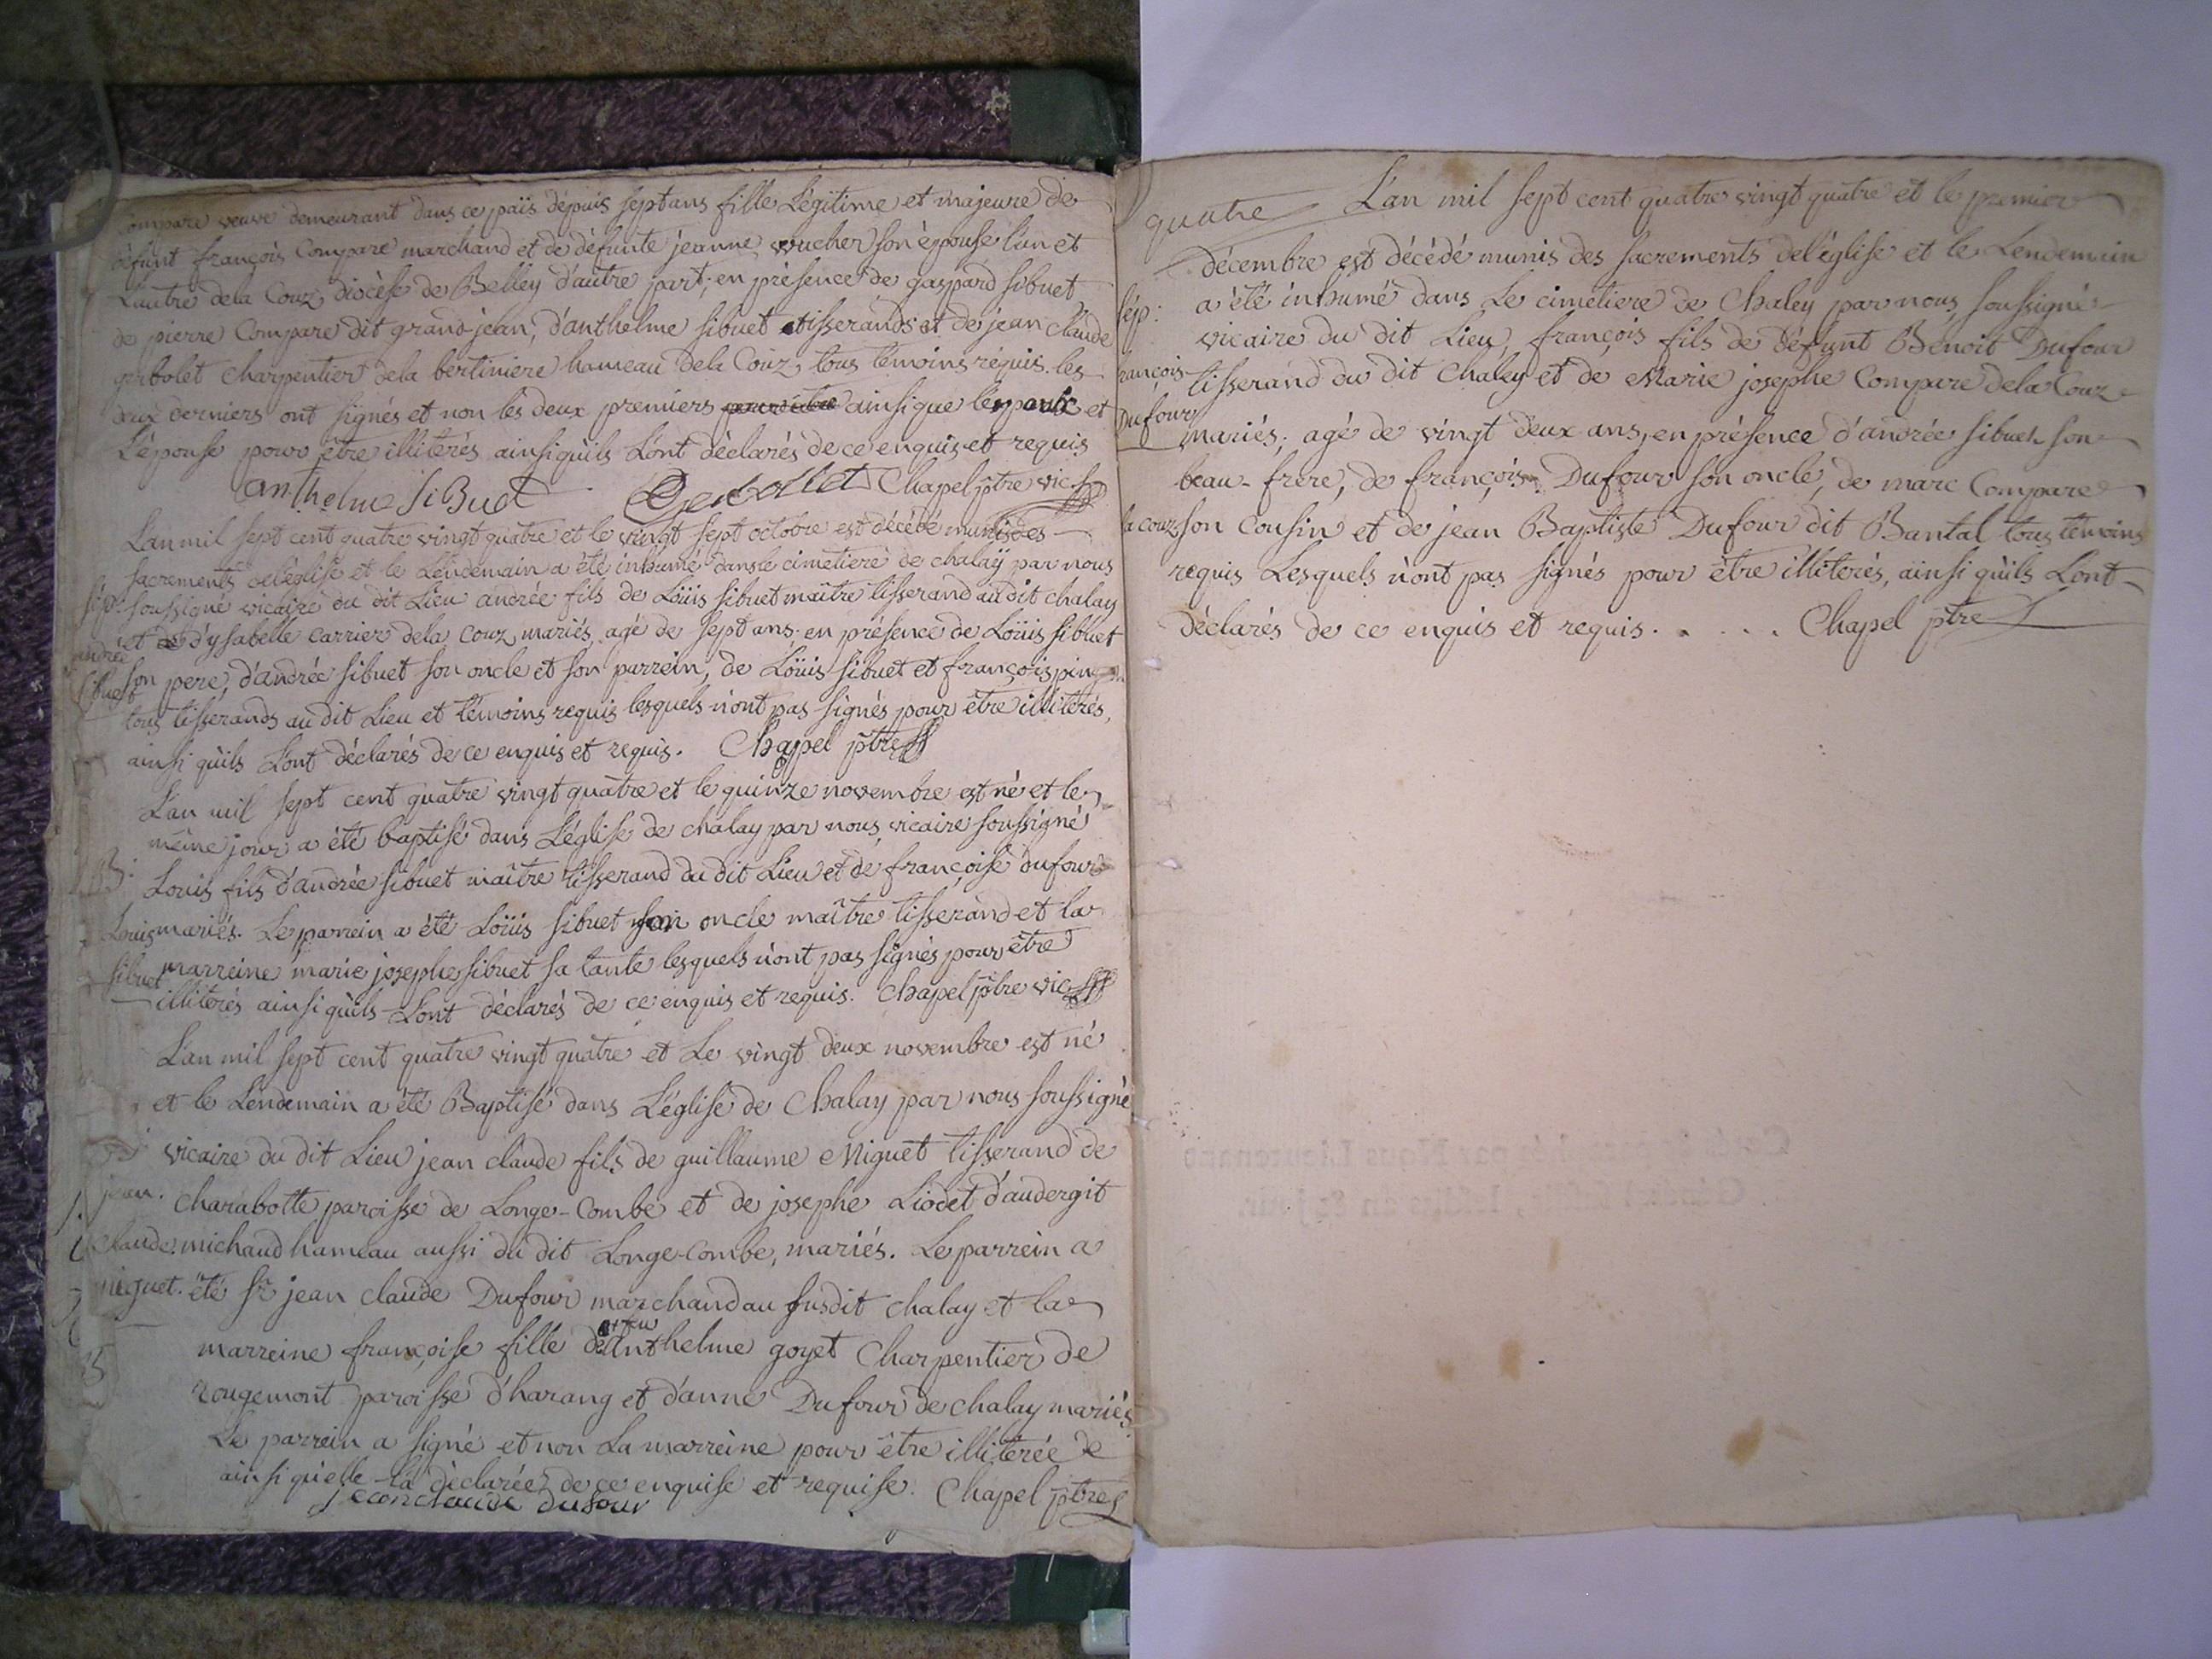 Compare veuve demeurant dans ce païs dépuis sept ans fille Légitime et majeure de
défunt françois Compare marchand et de défunte jeanne vucher son épouse l'un et
L'autre dela Couz diocèse de Belley d'autre part; en présence de gaspard sibuet
de pierre Compare dit grand-jean, d'anthelme sibuet tisserands et de jean Claude
gerbolet charpentier dela bertiniere hameau dela Couz, tous témoins réquis. les
deux derniers ont signés et non les deux premiers ainsi que l'epoux et
L'épouse pour être illitérés ainsi qu'ils L'ont déclarés de ce enquis et requis
anthelme siBuet Gerbollet Chapel ptre vic.
L'an mil sept cent quatre vingt quatre et le vingt sept octobre est décédé munis des
sacrements del'église et le Lendemain a été inhumé dans le cimetiere de chalay par nous
sép: soussigné vicaire du dit Lieu andrée fils de Löuis sibuet maître tisserand au dit chalay
et d'ysabelle carrier dela couz mariés, agé de sept ans. en présence de Löuis sibuet
andrée son pere, d'andrée sibuet son oncle et son parrein, de Löuis sibuet et françois
sibuet tous tisserands au dit Lieu et témoins requis lesquels n'ont pas signés pour être illitérés,
ainsi qu'ils L'ont déclarés de ce enquis et requis. Chapel ptre
L'an mil sept cent quatre vingt quatre et le quinze novembre est né et le
même jour a été baptisé dans L'église de chalay par nous vicaire soussigné
B: Louis fils d'andrée sibuet maître tisserand du dit Lieu et de françoise dufour
Louis mariés. Le parrein a été Löuis sibuet son oncle maître tisserand et la
sibuet marreine marie josephe sibuet sa tante lesquels n'ont pas signés pour être
illitérés ainsi qu'ils L'ont déclarés de ce enquis et requis. Chapel ptre vic
L'an mil sept cent quatre vingt quatre et Le vingt deux novembre est né
et le Lendemain a été Baptisé dans L'église de Chalay par nous soussigné
vicaire du dit Lieu jean claude fils de guillaume Miguet tisserand de
jean. charabotte paroisse de Longe-Combe et de josephe Liodet d'audergit
Claude. michaud hameau aussi du dit Longe-Combe, mariés. Le parrein a
miguet. été sr jean claude Dufour marchand au susdit chalay et la
marreine françoise fille de feu Anthelme goyet Charpentier de
rougemont paroisse d'harang et d'anne Dufour de chalay mariés
Le parrein a signé et non La marreine pour être illiterée
ainsi qu'elle la déclarée de ce enquise et requise. Chapel ptre
jean claude dufour
quatre L'an mil sept cent quatre vingt quatre et le premier
décembre est décédé munis des sacrements del'église et le Lendemain
sép: a été inhumé dans Le cimetiere de Chaley par nous soussigné
vicaire du dit Lieu, françois fils de défunt Benoit Dufour
françois tisserand du dit Chaley et de Marie josephe Compare dela Couz
Dufour mariés; agé de vingt deux ans, en présence d'andrée sibuet son
beau-frere, de françois Dufour son oncle, de marc Compare
la couz son cousin et de jean Baptiste Dufour dit Bantal tous témoins
requis Lesquels n'ont pas signés pour être illitérés, ainsi qu'ils L'ont
déclarés de ce enquis et requis. . . . . Chapel ptre